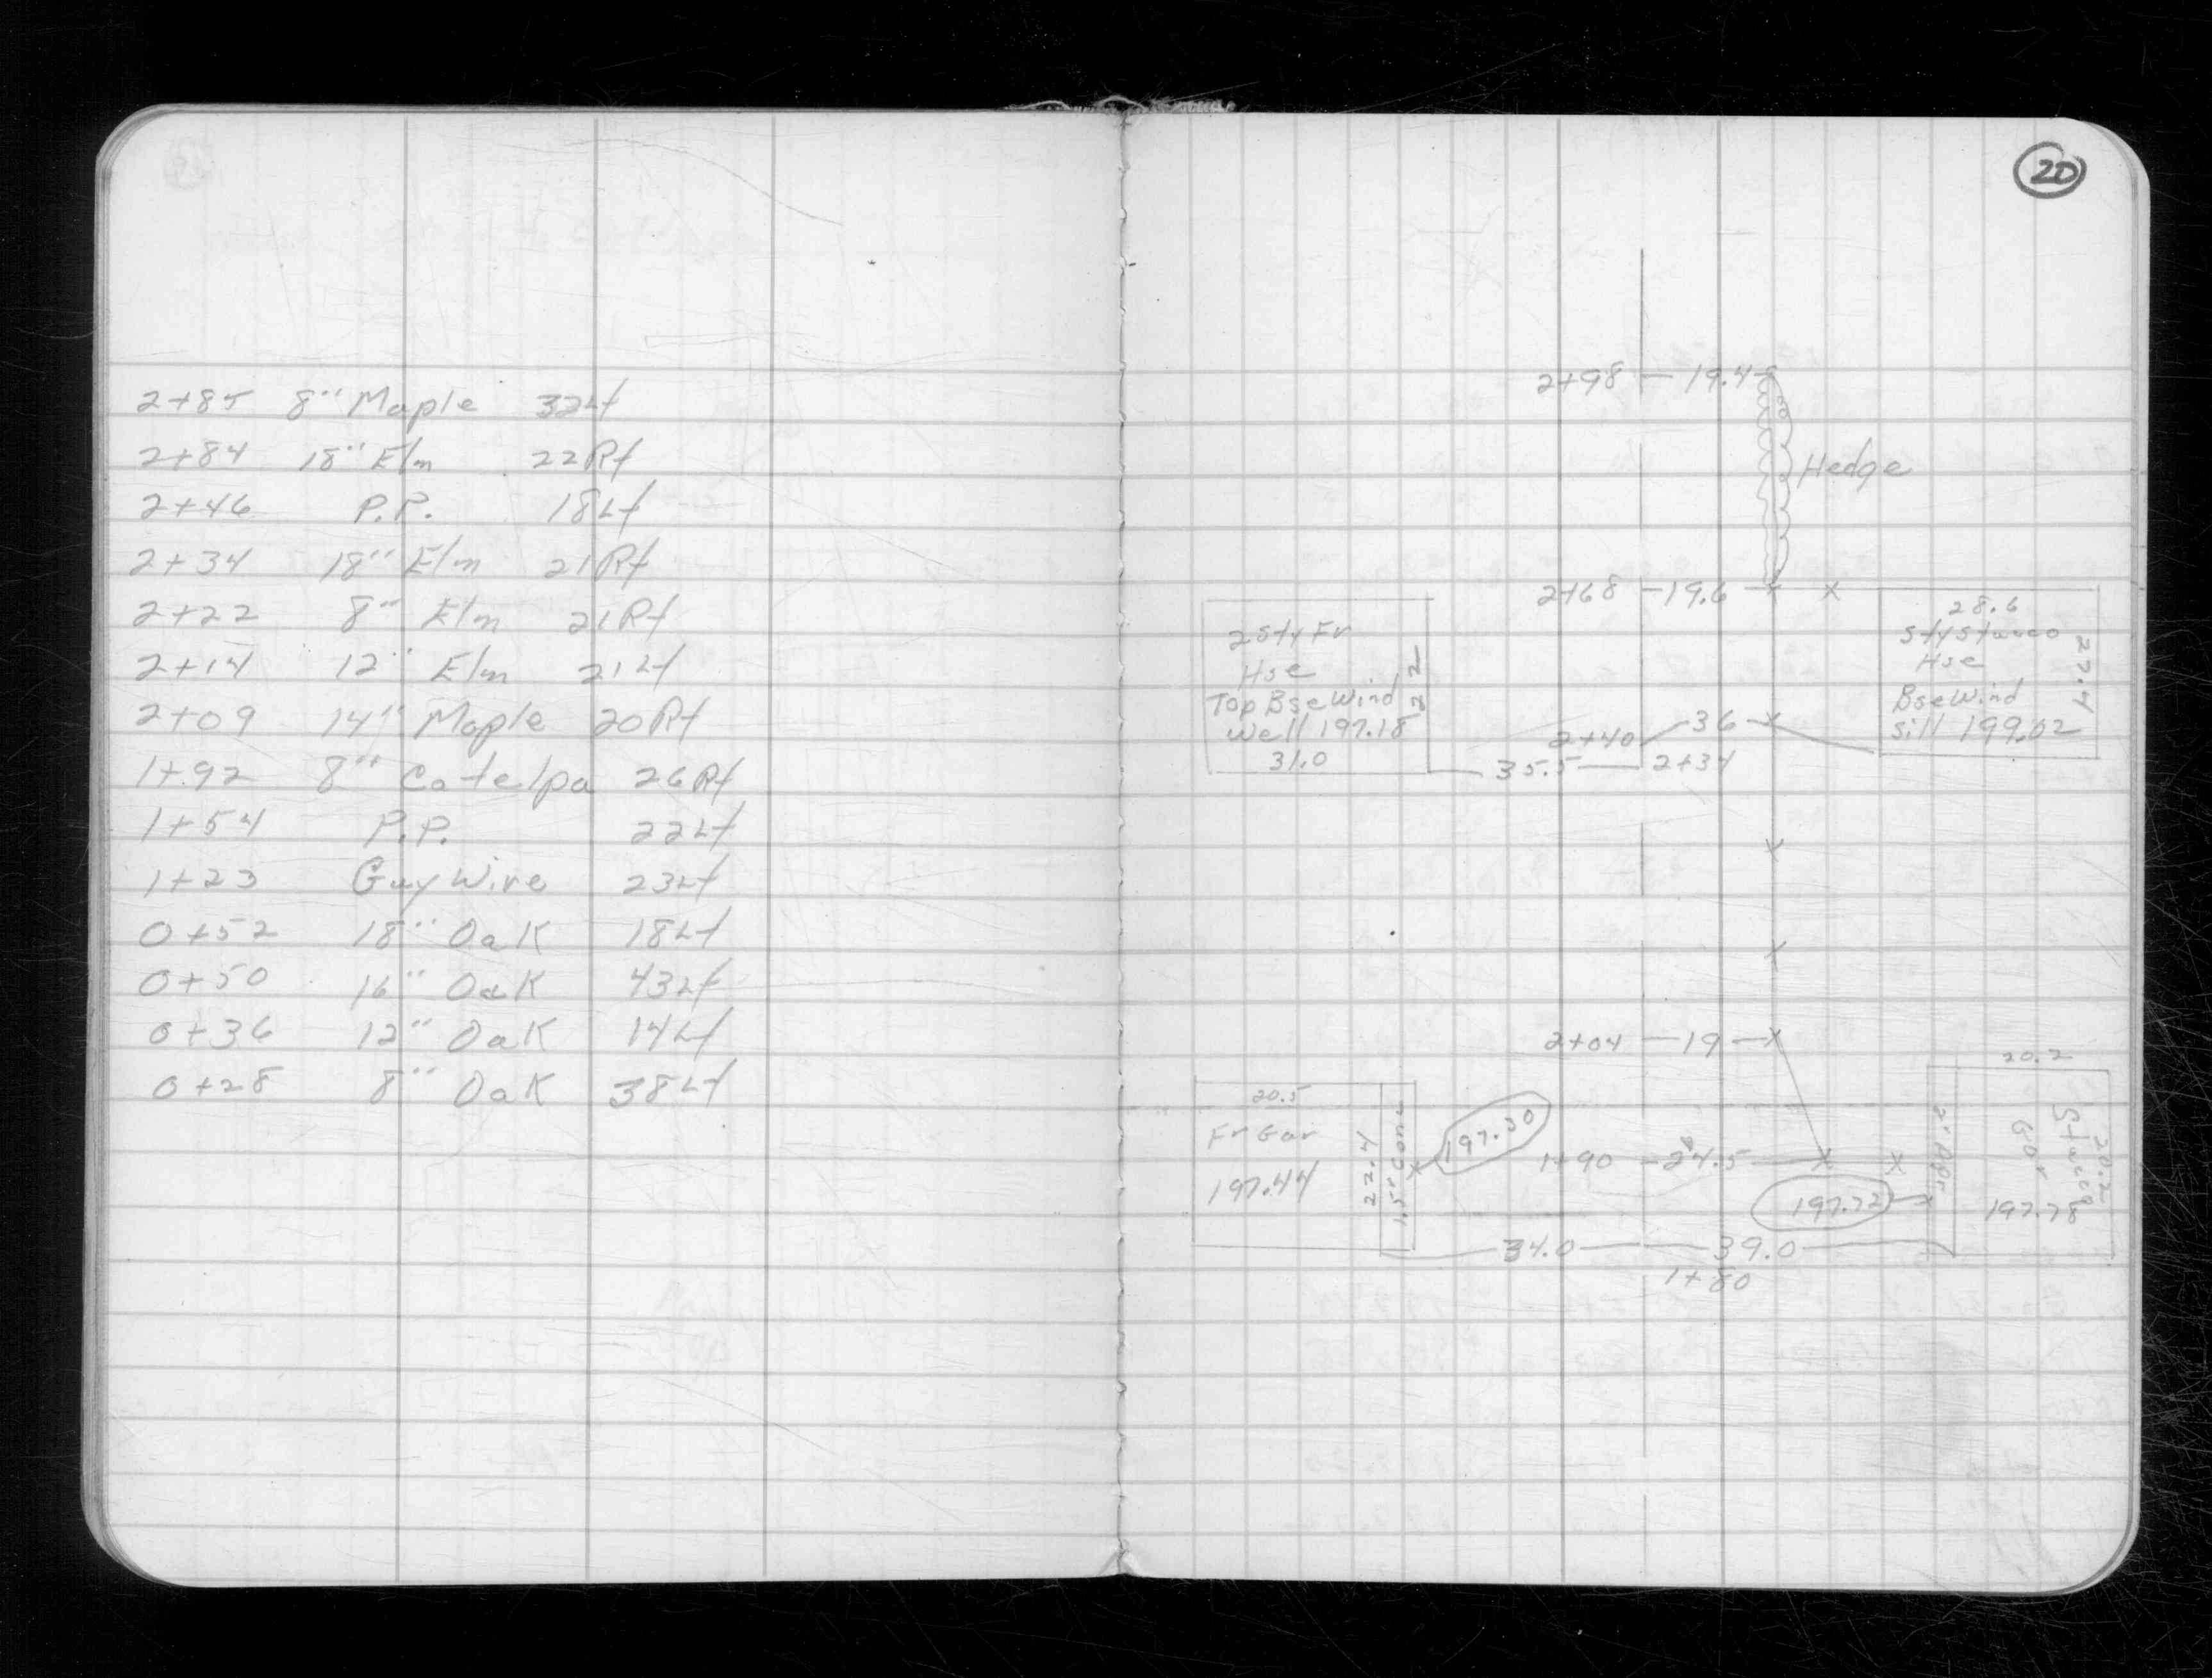 2+85 8" Maple 32Lt
2+84 18" Elm 22Rt
2+46 P.P. 18Lt
2+34 18" Elm 21Rt
2+22 8" Elm 21Rt
2+14 12" Elm 21Lt
2+09 14" Maple 20Rt
1+92 8" Catelpa 26Rt
1+54 P.P. 22Lt
1+23 Guy Wire 23Lt
0+52 18" Oak 18Lt
0+50 16" Oak 43Lt
0+36 12" Oak 14Lt
0+28 8" Oak 38Lt
20
2+98 19.4
Hedge
2+68 19.6
2 Sty Fr
Hse
Top Bse Wind
Well 197.18
31.0
22.2
28.6
Sty Stucco
Hse
Bse Wind
Sill 199.02
27.4
2+40 36
35.5 2+34
2+04 19
20.5
Fr Gar
197.44
22.4
1.5' Conc
197.30
1+90 24.5
197.72
20.2
Stucco
Gar
197.78
20.2
34.0 39.0
1+80